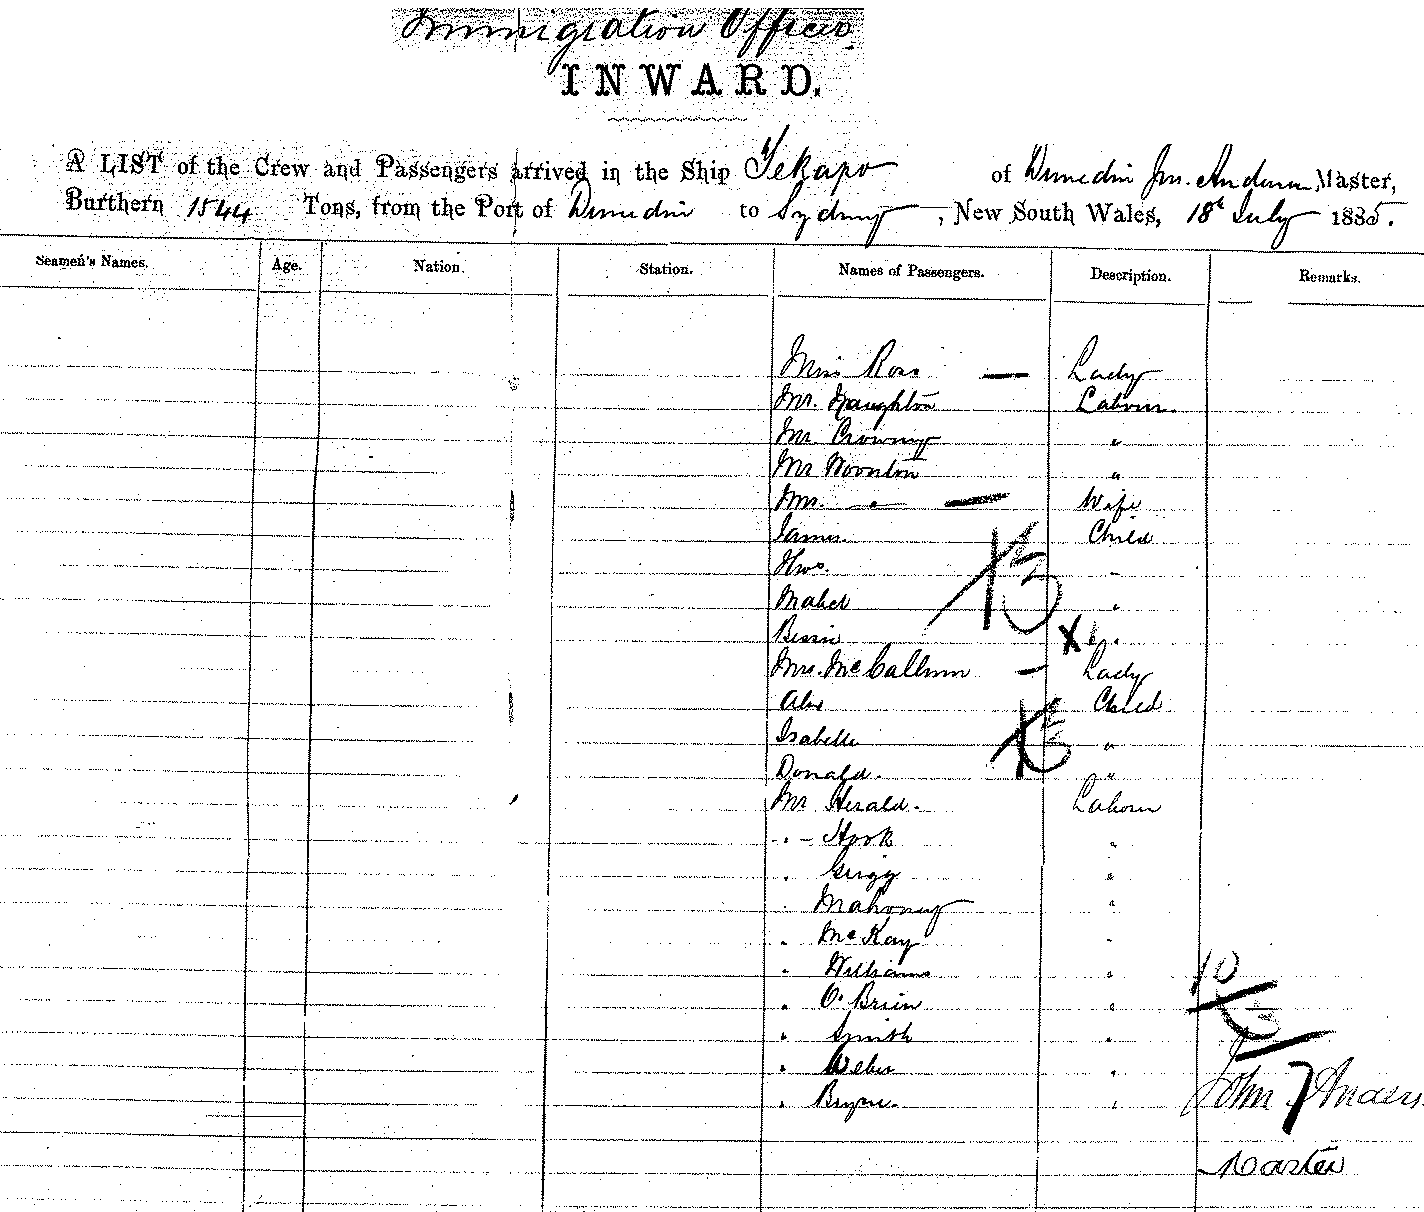 Immigration Officer
INWARD.
A LIST of the Crew and Passengers arrived in the Ship Tekapo of Dunedin Jno. Anderson, Master,
Burthern 1544 Tons, from the Port of Dunedin to Sydney, New South Wales, 18th July 1885.
Seamen's Names. Age. Nation. Station. Names of Passengers. Description. Remarks.
Miss Ross — Lady
Mr. Naughton Labour.
Mr. Crowney "
Mr "
Mrs. — " — Wife
James. Child
Thos. "
Mabel "
Bessie "
Mrs. McCallum — Lady
Alex Child
Isabella "
Donald. "
Mr Herald. Labour
" — Hook "
" Grigg "
" Mahoney "
" McKay "
" Williams "
" O'Brien "
" Smith "
" Weber "
" Bryne. "
10
John Anders
Master